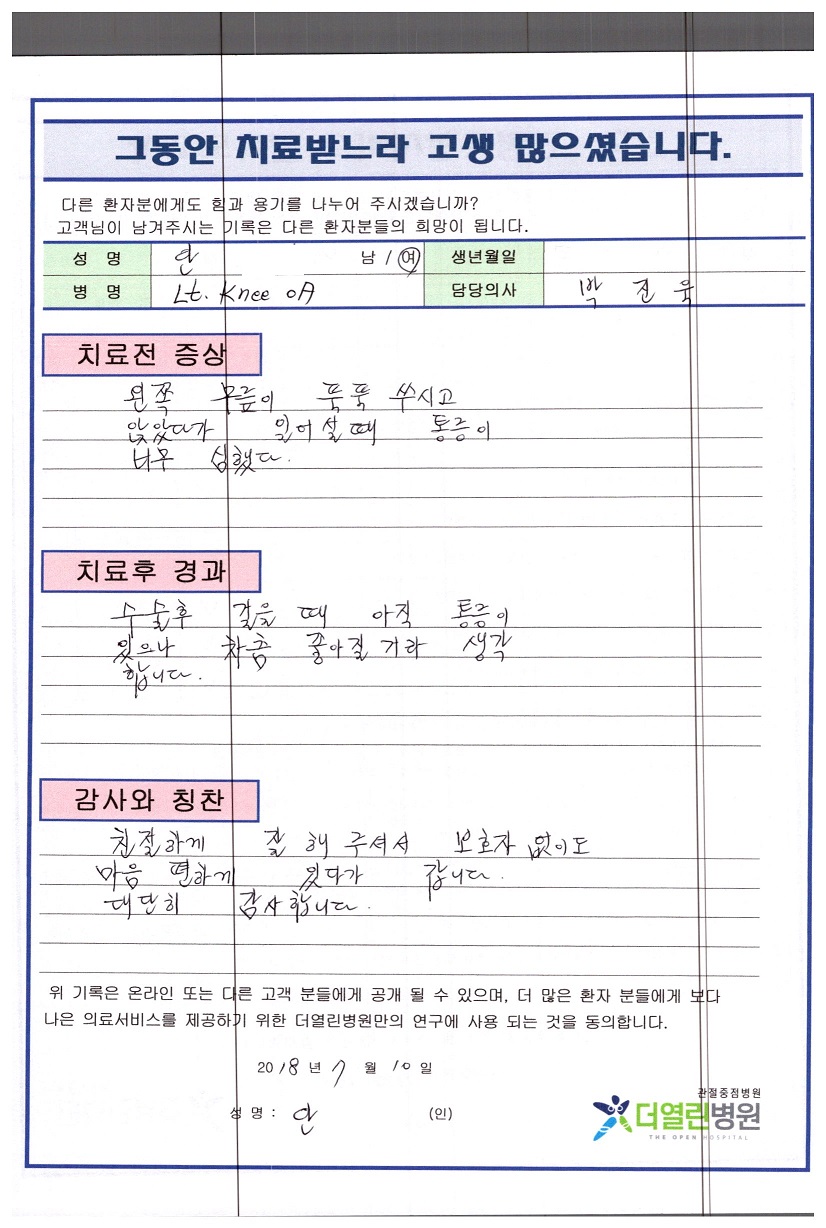 그동안 치료받느라 고생 많으셨습니다.
다른 환자분에게도 힘과 용기를 나누어 주시겠습니까?
고객님이 남겨주시는 기록은 다른 환자분들의 희망이 됩니다.
성 명 안 남 / 여 생년월일
병 명 Lt. Knee OA 담당의사 박 진 욱
치료전 증상
왼쪽 무릎이 푹푹 쑤시고
앉았다가 일어설때 통증이
너무 심했다.
치료후 경과
수술후 걸을 때 아직 통증이
있으나 차츰 좋아질 거라 생각
합니다.
감사와 칭찬
친절하게 잘 해 주셔서 보호자 없이도
마음 편하게 있다가 갑니다.
대단히 감사합니다.
위 기록은 온라인 또는 다른 고객 분들에게 공개 될 수 있으며, 더 많은 환자 분들에게 보다
나은 의료서비스를 제공하기 위한 더열린병원만의 연구에 사용 되는 것을 동의합니다.
2018 년 7 월 10 일
성 명 : 안 (인)
관절중점병원
더열린병원
THE OPEN HOSPITAL